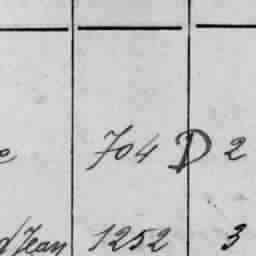 704 D 2
d'Jean 1252 3